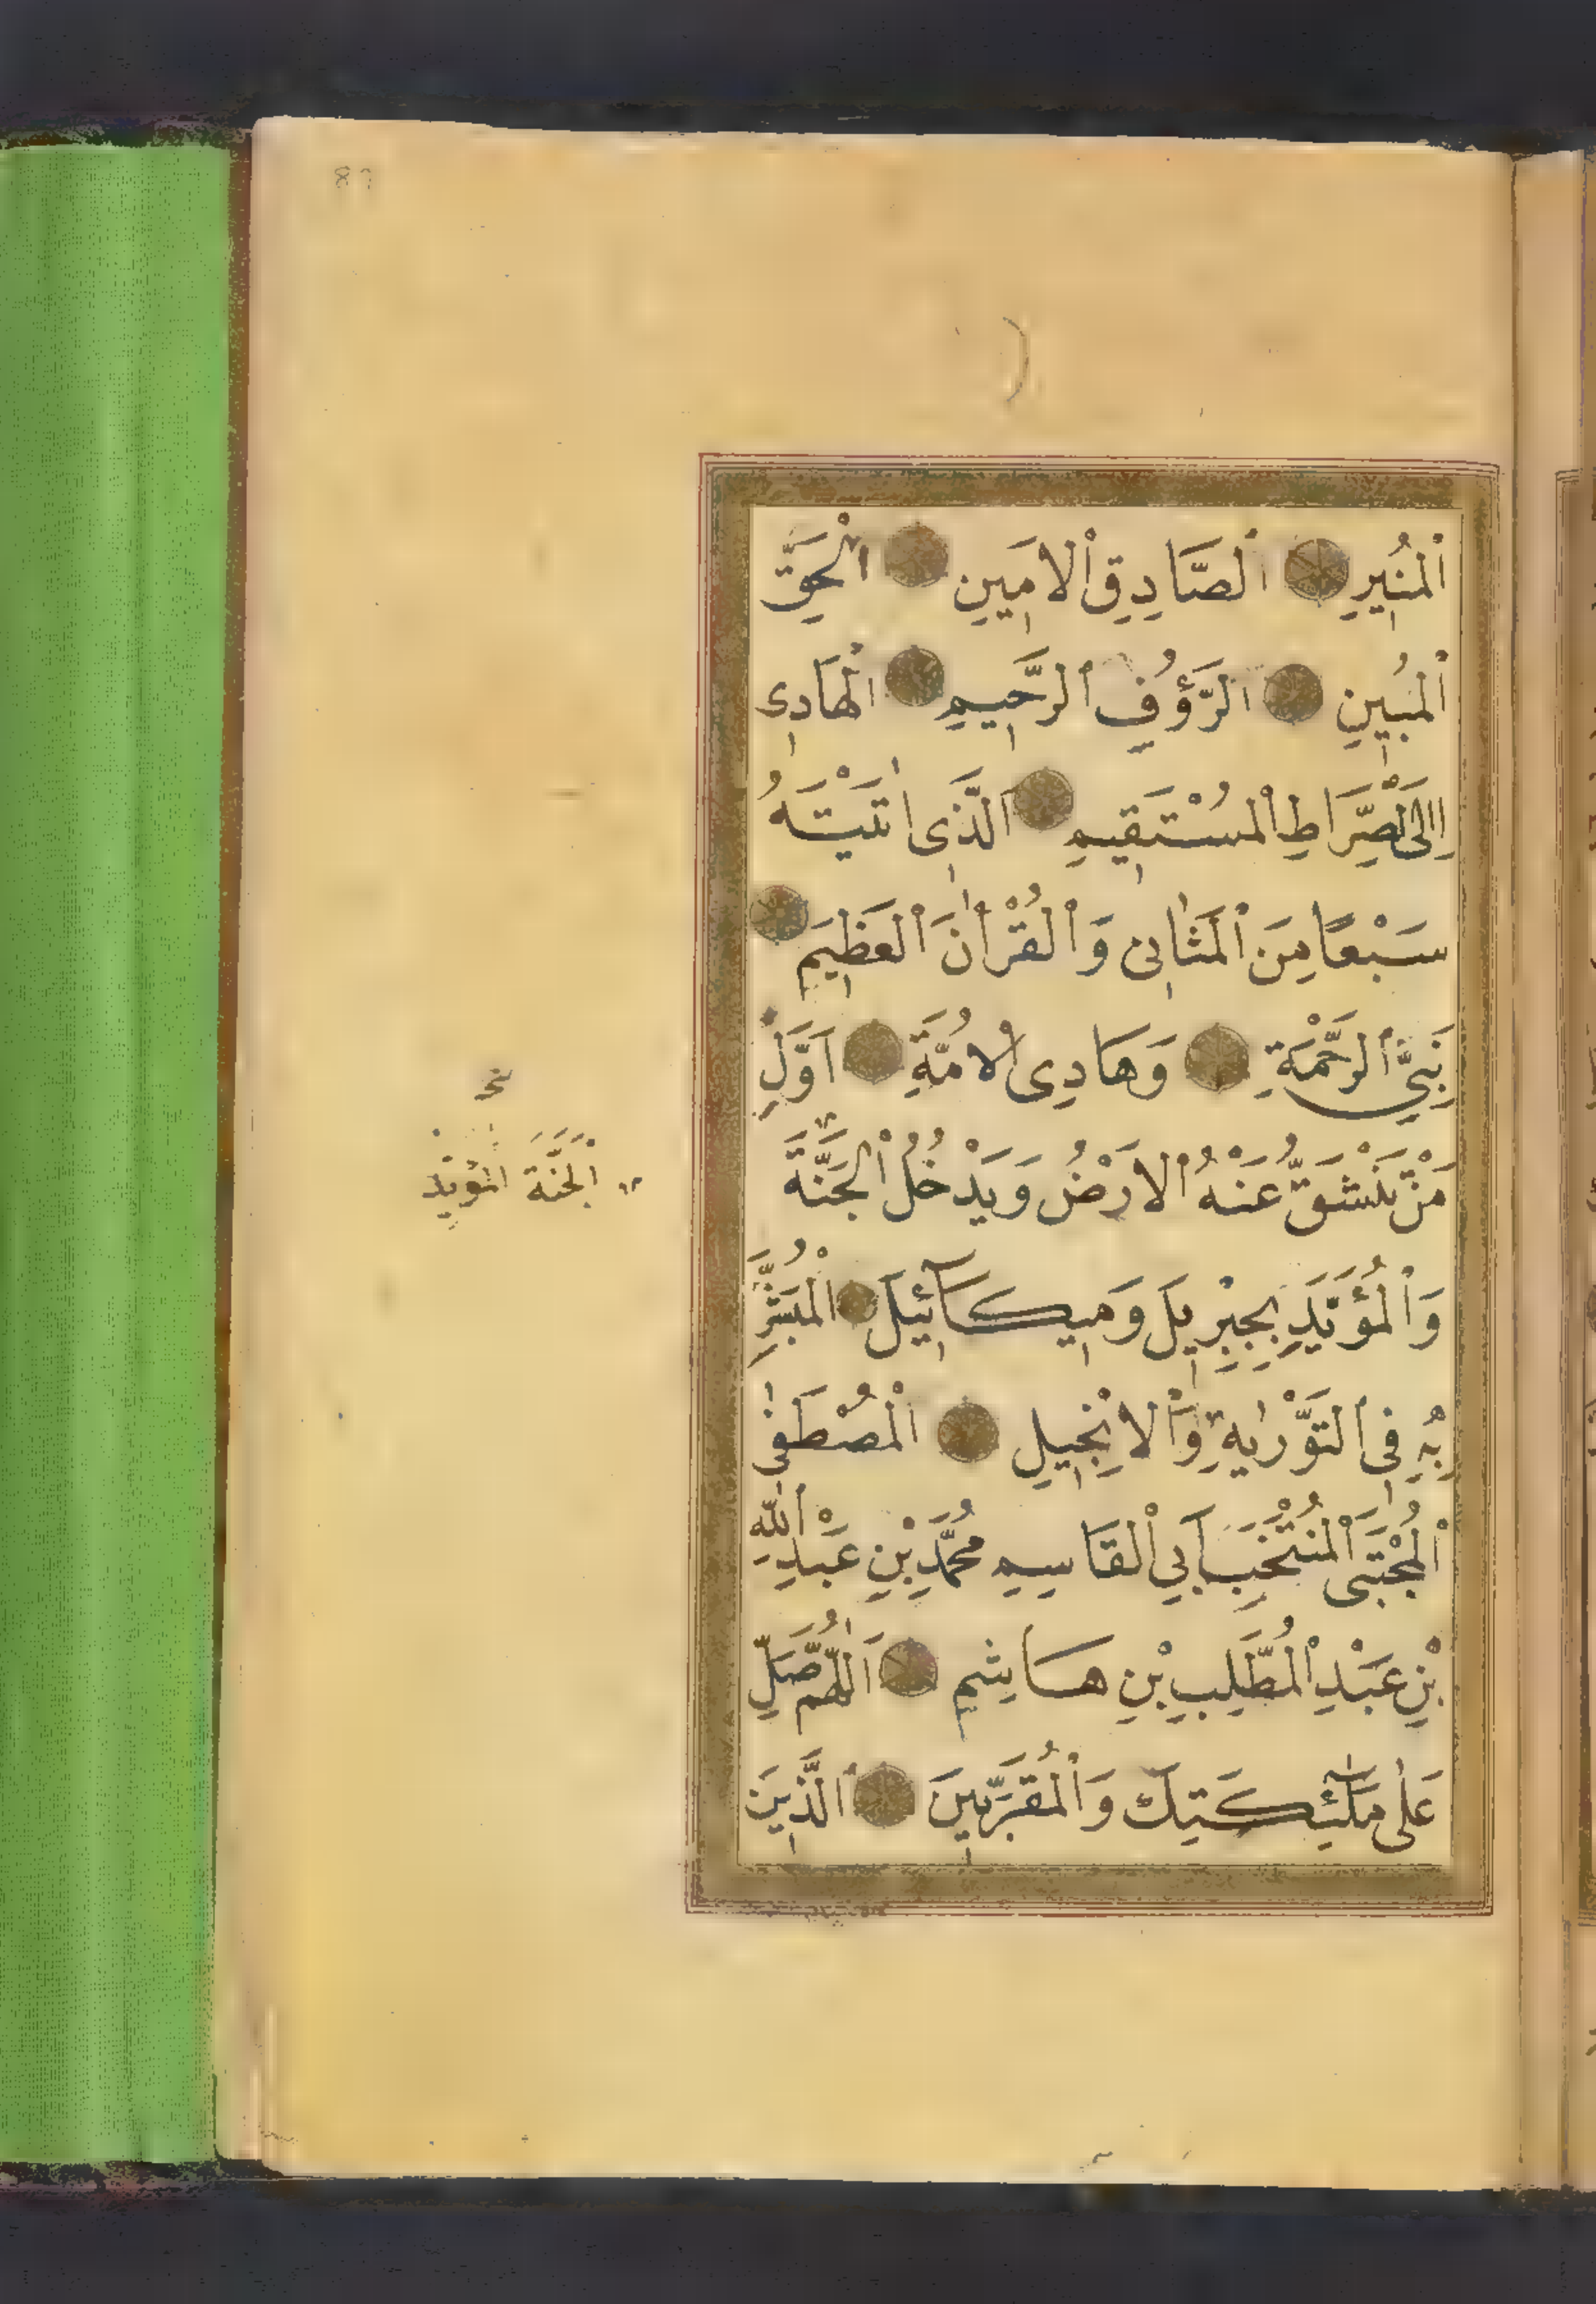 اَلْمُنِيرِ اَلصَّادِقِ الْاَمِينِ اَلْحَقِّ
اَلْمُبِينِ اَلرَّؤُفِ الرَّحِيمِ اَلْهَادِى
اِلَى الصِّرَاطِ الْمُسْتَقِيمِ اَلَّذِى اٰتَيْتَهُ
سَبْعًا مِنَ الْمَثَانِى وَالْقُرْاٰنَ الْعَظِيمَ
نَبِيِّ الرَّحْمَةِ وَهَادِى الْاُمَّةِ اَوَّلِ
مَنْ تَنْشَقُّ عَنْهُ الْاَرْضُ وَيَدْخُلُ الْجَنَّةَ
وَالْمُؤَيَّدِ بِجِبْرِيلَ وَمِيكَآئِيلَ الْمُبَشَّرِ
بِهِ فِى التَّوْرٰيةِ وَالْاِنْجِيلِ الْمُصْطَفٰى
الْمُجْتَبَى الْمُنْتَخَبِ اَبِي الْقَاسِمِ مُحَمَّدِ بْنِ عَبْدِ اللهِ
بْنِ عَبْدِ الْمُطَّلِبِ بْنِ هَاشِمٍ اَللّٰهُمَّ صَلِّ
عَلٰى مَلٰٓئِكَتِكَ وَالْمُقَرَّبِينَ اَلَّذِينَ
اَلْجَنَّةَ الْمُؤَيَّدْ